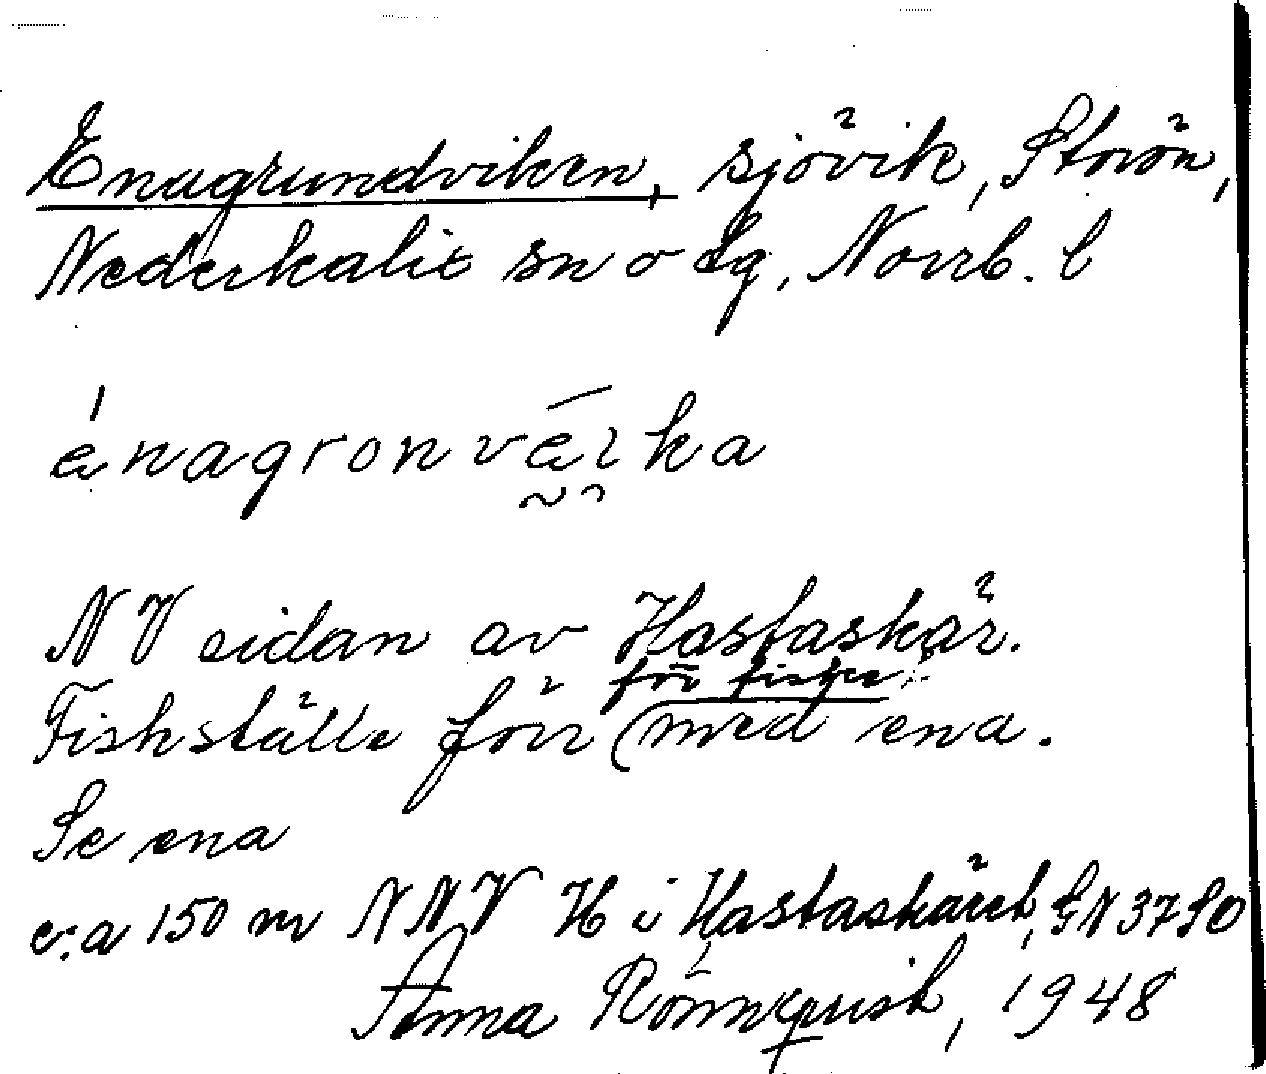 Enagrundviken, sjövik, Storön,
Nederkalix sn o sg, Norrb. l
enagronvẽɩka
NV sidan av Hastaskär.
för fiske
Fiskställe förr (med ena.
Se ena
c:a 150 m NNV H i Hastaskäret, GN 37 SO
Anna Rönnqvist, 1948